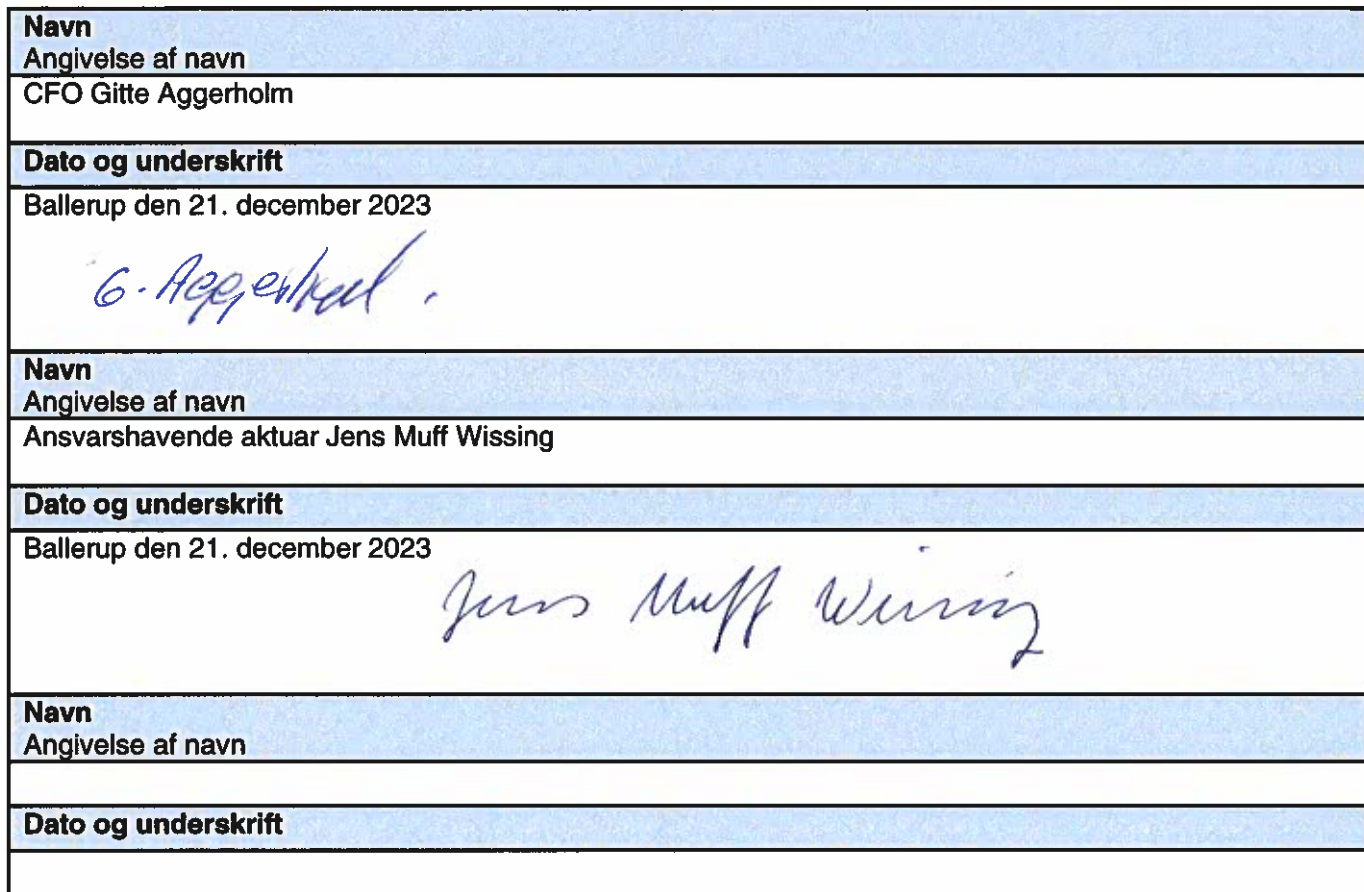 Navn
Angivelse af navn
CFO Gitte Aggerholm
Dato og underskrift
Ballerup den 21. december 2023
G. Aggerholm.
Navn
Angivelse af navn
Ansvarshavende aktuar Jens Muff Wissing
Dato og underskrift
Ballerup den 21. december 2023
Jens Muff Wissing
Navn
Angivelse af navn
Dato og underskrift